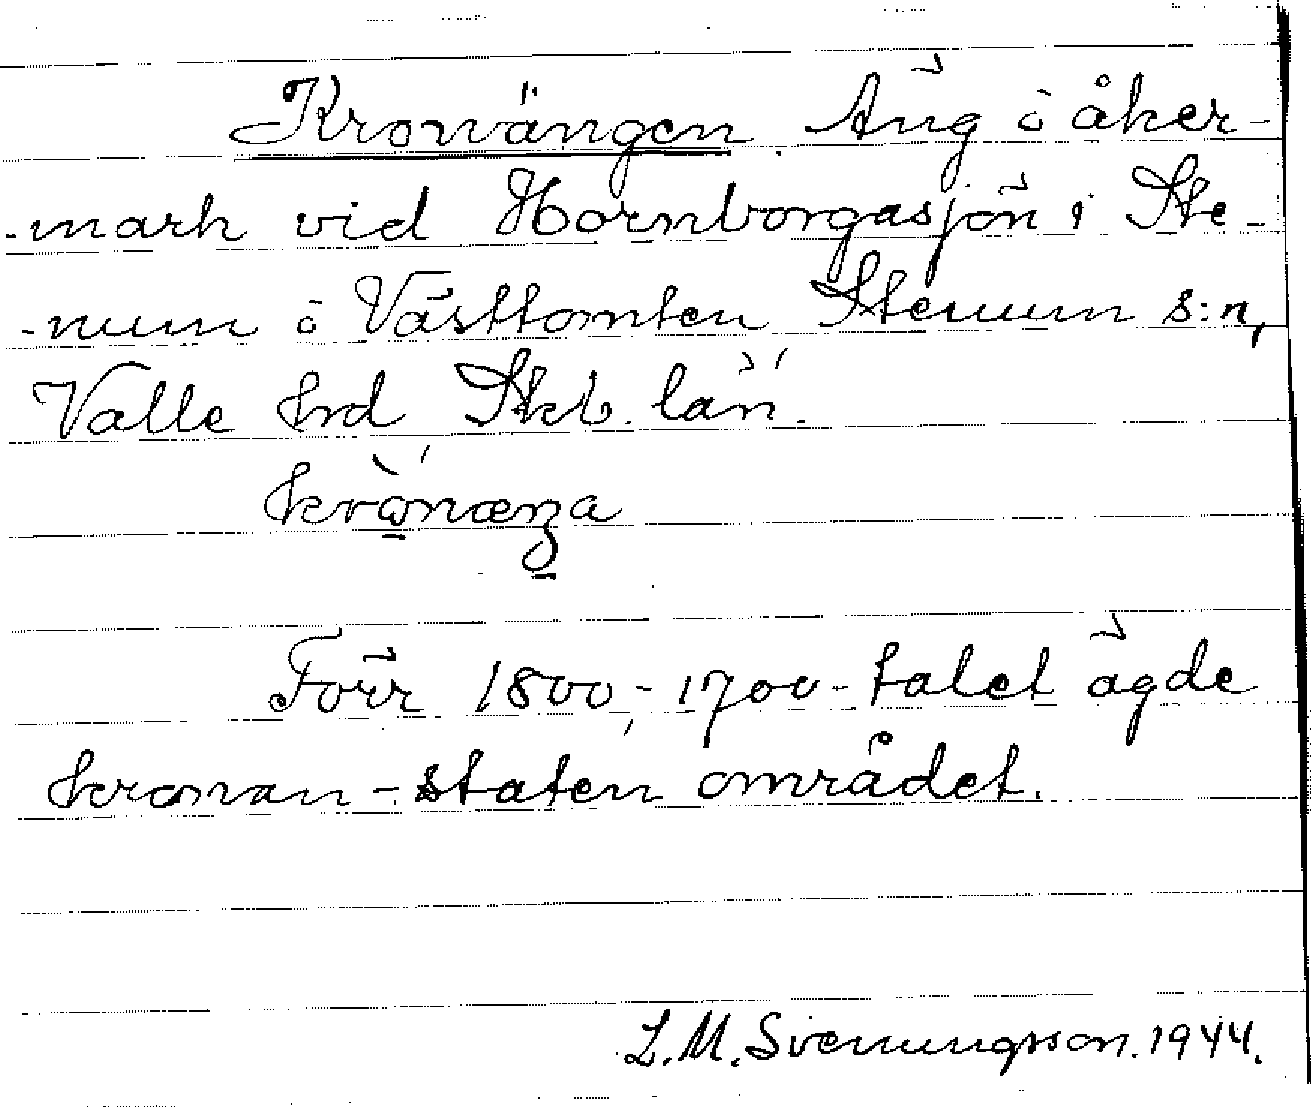 Kronängen. Äng ö åker-
-mark vid Hornborgasjön i Ste-
-num ö Västtomten Stenum s:n,
Valle hrd Skb. län.
krònænga
Förr 1800,- 1700-talet ägde
kronan-staten området.
L. M. Svenungsson. 1944.